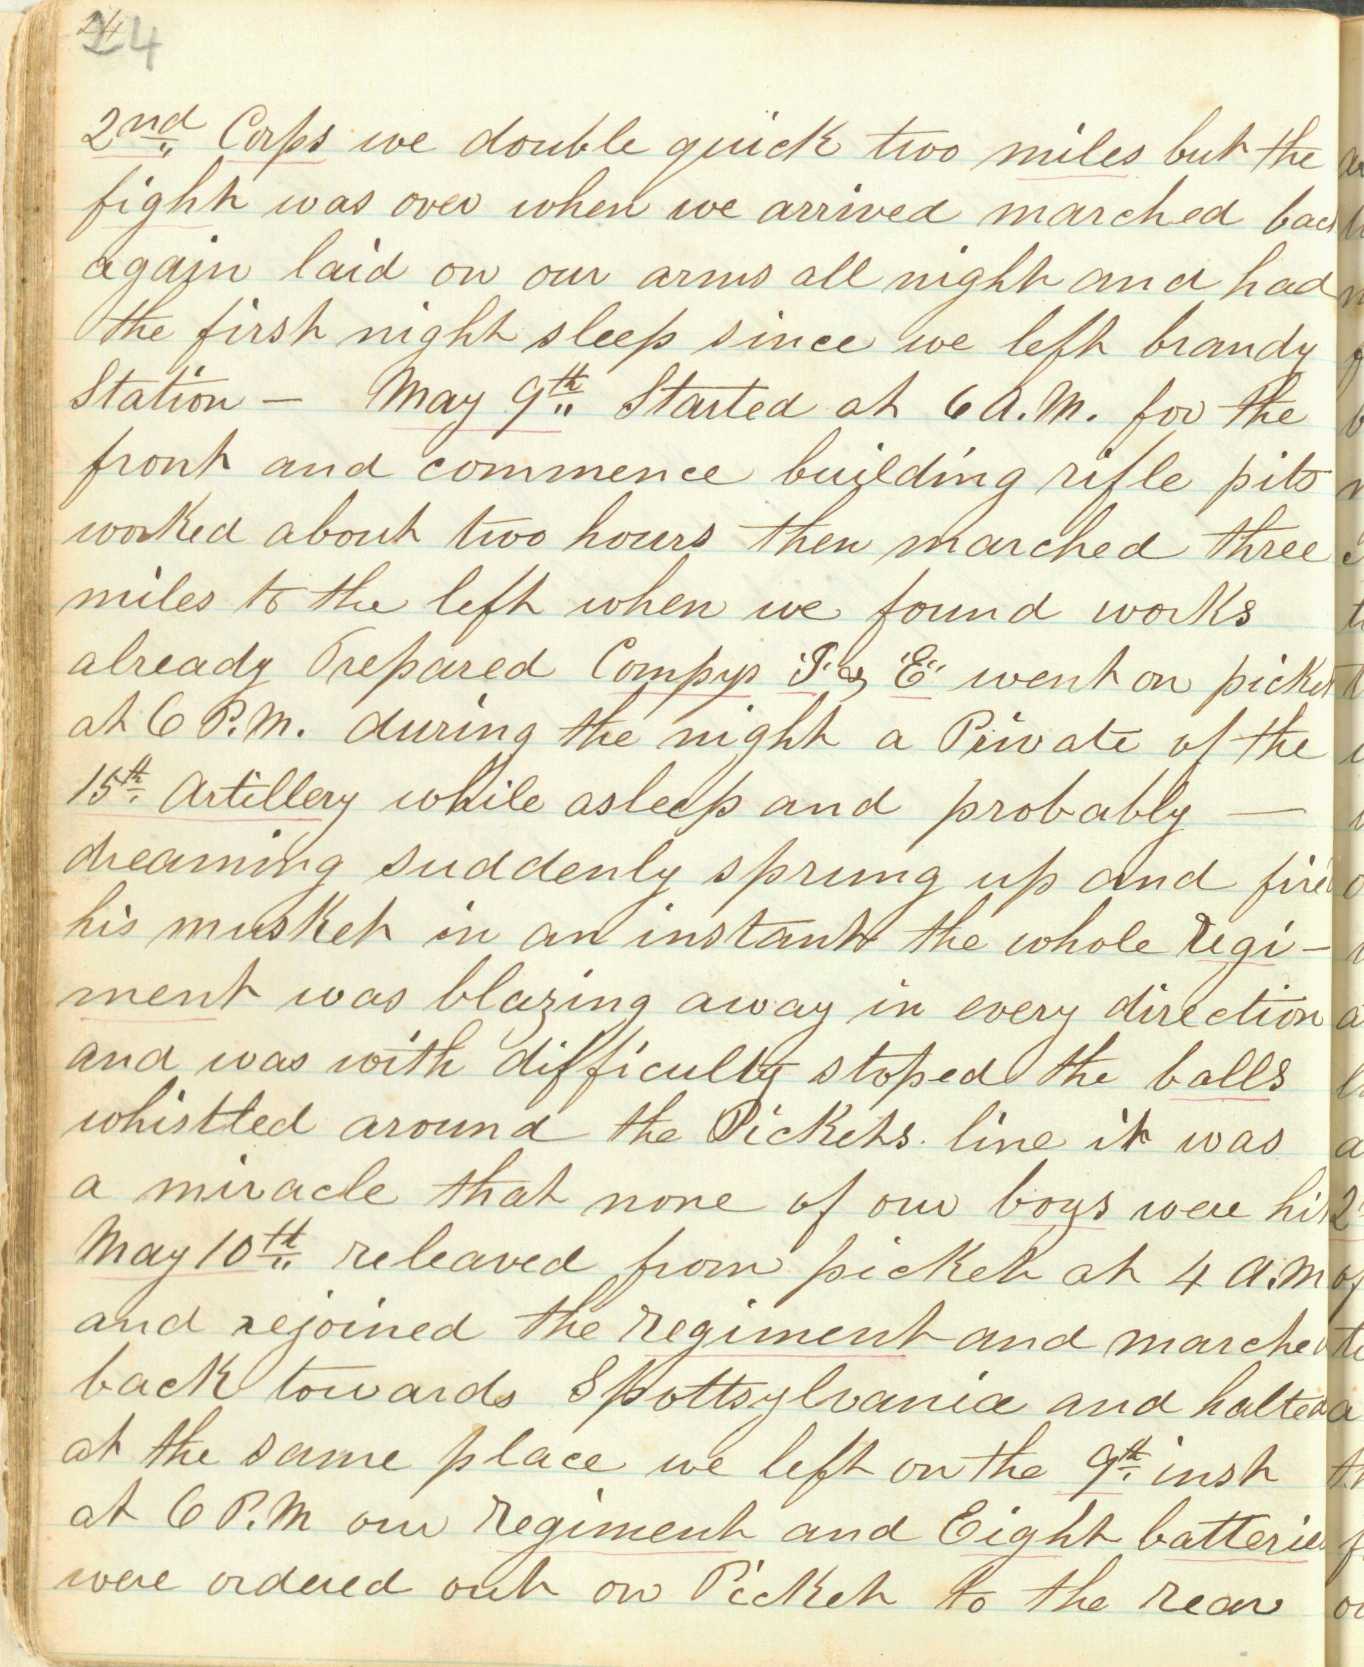 24
24
2nd Corps we double quick two miles but the
fight was over when we arrived marched back
again laid on our arms all night and had
the first night sleep since we left brandy
Station — May 9th Started at 6 A.M. for the
front and commence building rifle pits
worked about two hours then marched three
miles to the left when we found works
already Prepared Compys & "E" went on picket
at 6 P.M. during the night a Private of the
15th Artillery while asleep and probably —
dreaming suddenly sprung up and fired
his musket in an instant the whole regi-
ment was blazing away in every direction
and was with difficulty stoped the balls
whistled around the Pickets line it was
a miracle that none of our boys were hit
May 10th releaved from picket at 4 A.M
and rejoined the regiment and marched
back towards Spottsylvania and halted
at the same place we left on the 9th inst
at 6 P.M our regiment and Eight batteries
were ordered out on Picket to the rear